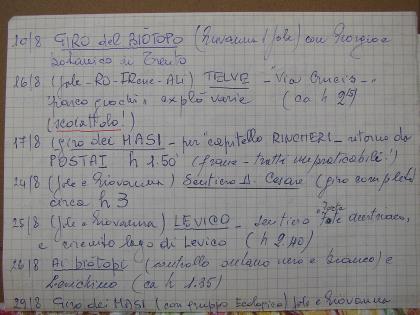 10/8 GIRO del BIOTOPO (Giovanna / Jole) con Giorgio e
botanico di Trento
16/8 (Jole - RO - IRene - ALi) TELVE - "Via Crucis" -
Parco giochi, explò varie (ca h 2
(scoiattolo!)
17/8 (giro dei MASI - per capitello RINCHERI - ritorno da
POSTAI h 1.50' (frane - tratti impraticabili!)
24/8 (Jole e Giovanna) Sentiero D. Cesare (giro completo)
circa h 3
25/8 (Jole e Giovanna) LEVICO - sentiero Forte austriaco,
e circuito lago di Levico (h 2,40)
26/8 Ai biotopi (controllo ontano nero e bianco) e
Zanchino (ca h 1.35)
29/8 Giro dei MASI (con gruppo Ecologico) Jole e Giovanna